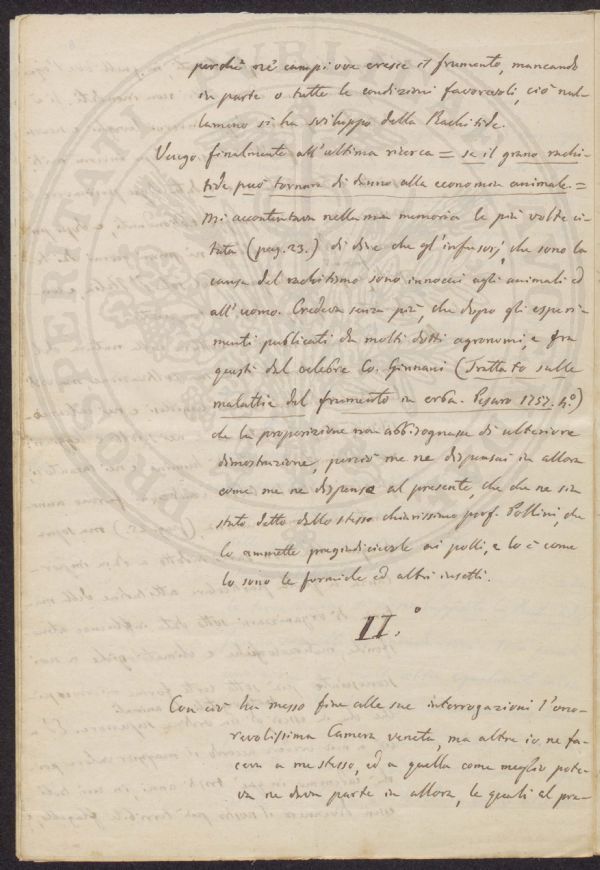 perchè ne' campi ove cresce il frumento, mancando
in parte o tutte le condizioni favorevoli, ciò nul-
lameno si ha sviluppo della Rachitide.
Vengo finalmente all'ultima ricerca = se il grano rachi-
tide può tornare di danno alla economia animale. =
Mi accontentava nella mia memoria le più volte ci-
tata (pag. 23.) di dire che gl'infusorj, che sono la
causa del rachitismo sono innocui agli animali ed
all'uomo. Credeva senza più, che dopo gli esperi-
menti publicati da molti dotti agronomi, e fra
questi dal celebre Co. Ginnani (Trattato sulle
malattie del frumento in erba. Pesaro 1757. 4.º)
che la proposizione non abbisognasse di ulteriore
dimostrazione, perciò me ne dispensai in allora
come me ne dispenso al presente, che che ne sia
stato detto dallo stesso chiarissimo prof. Pollini, che
lo ammette pregiudicievole ai polli, e lo è come
lo sono le formiche ed altri insetti.
II.º
Con ciò ha messo fine alle sue interrogazioni l'ono-
revolissima Camera veneta, ma altre io ne fa-
ceva a me stesso, ed a quella come meglio pote-
va ne dava parte in allora, le quali al pre-